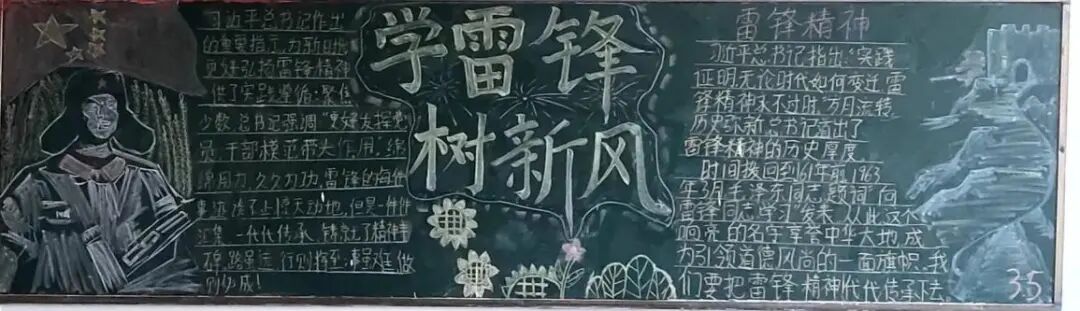 习近平总书记作出
的重要指示,为新时代
更好弘扬雷锋精神
供了实践遵循。聚焦
少数,总书记强调"更好发挥党
员、干部模范带头作用,绵
绵用力,久久为功,雷锋的每件
事迹谈不上惊天动地,但是一件件
汇集,一代代传承,铸就了精神丰
碑,路虽远,行则将至,事虽难,做
则必成!
学雷锋
树新风
雷锋精神
习近平总书记指出:"实践
证明,无论时代如何变迁,雷
锋精神永不过时"岁月流转
历史弥新,总书记道出了
雷锋精神的历史厚度。
时间拨回到61年前,1963
年3月,毛泽东同志题词"向
雷锋同志学习"发表,从此这个
响亮的名字享誉中华大地,成
为引领道德风尚的一面旗帜,我
们要把雷锋精神代代传承下去。
3.5